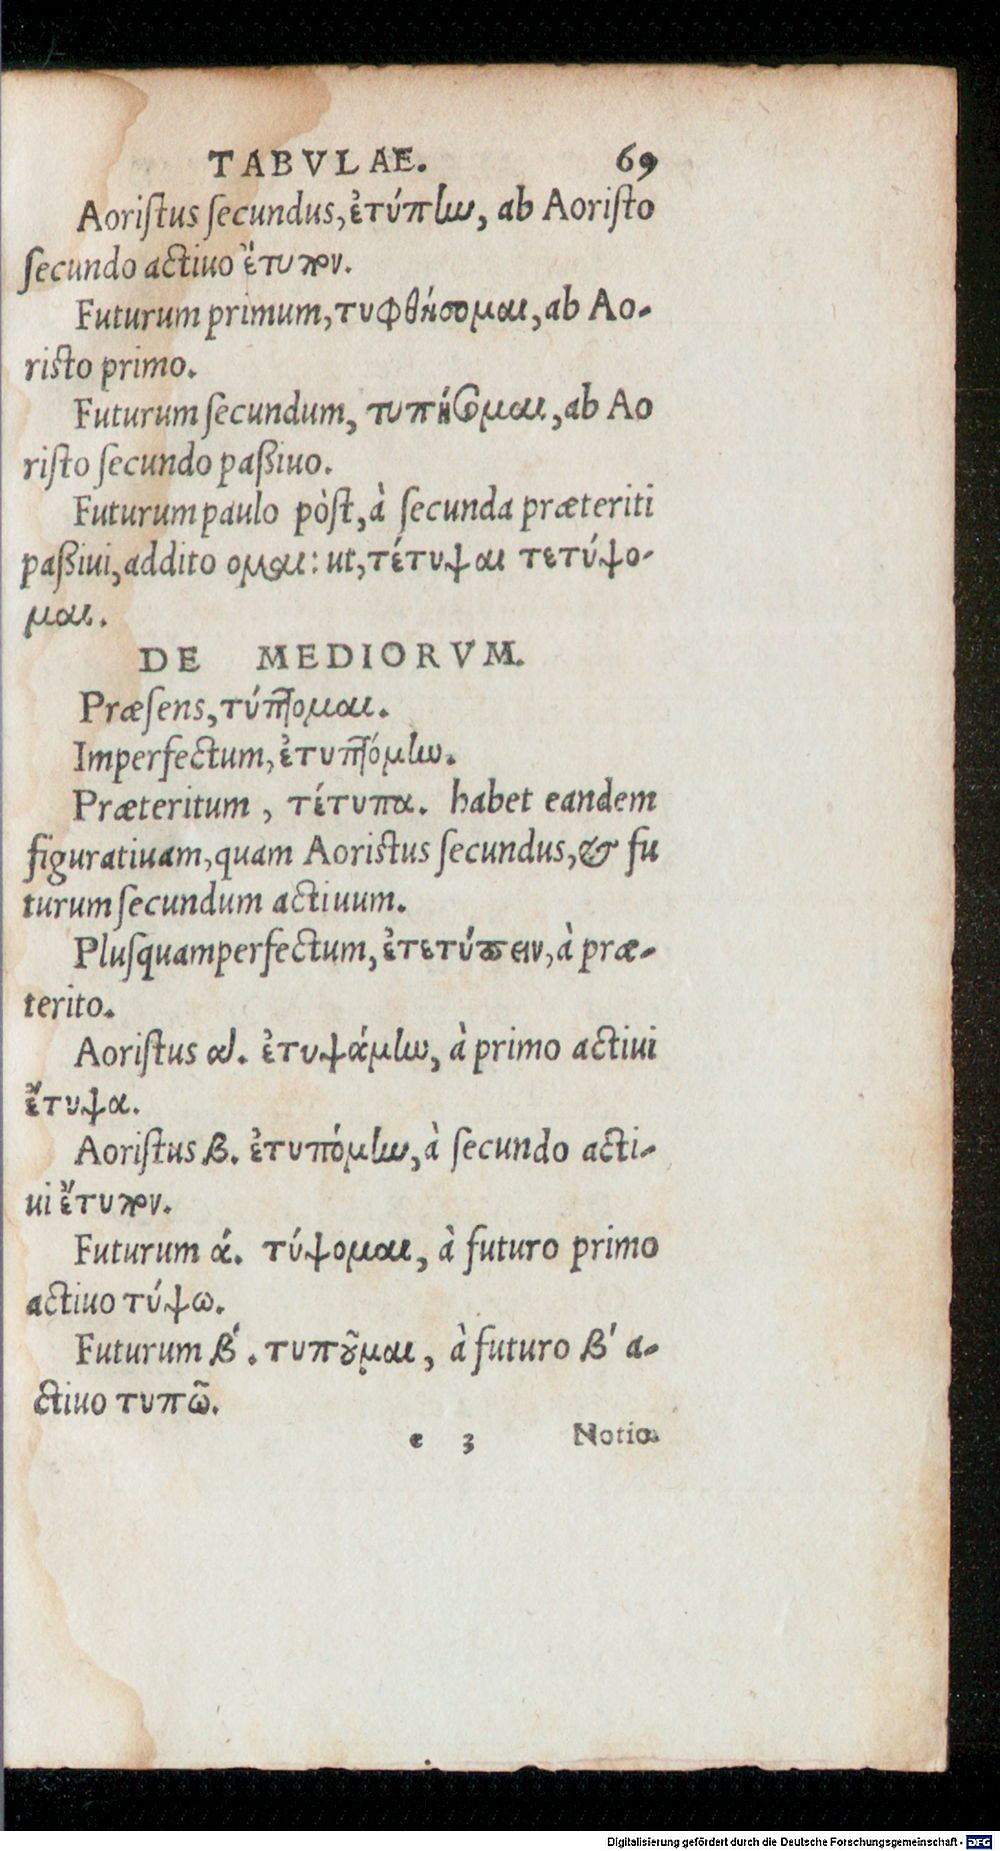 TABVLAE. 69
Aoriſtus ſecundus, ἐτύπην, ab Aoriſto
ſecundo actiuo ἔτυπον.
Futurum primum, τυφθήσομαι, ab Ao-
risto primo.
Futurum ſecundum, τυπήσομαι, ab Ao
riſto ſecundo paßiuo.
Futurum paulo pòſt, à ſecunda præteriti
paßiui, addito ομαι: ut, τέτυψαι τετύψο-
μαι.
DE MEDIORVM.
Præſens, τύπτομαι.
Imperfectum, ἐτυπτόμην.
Præteritum, τέτυπα. habet eandem
figuratiuam, quam Aoristus ſecundus, & fu
turum ſecundum actiuum.
Pluſquamperfectum, ἐτετύπειν, à præ-
terito.
Aoriſtus α. ἐτυψάμην, à primo actiui
ἔτυψα.
Aoriſtus β. ἐτυπόμην, à ſecundo acti-
ui ἔτυπον.
Futurum ά. τύψομαι, à futuro primo
actiuo τύψω.
Futurum β'. τυποῦμαι, à futuro β' a-
ctiuo τυπῶ.
e 3 Notio.
Digitalisierung gefördert durch die Deutsche Forschungsgemeinschaft - DFG